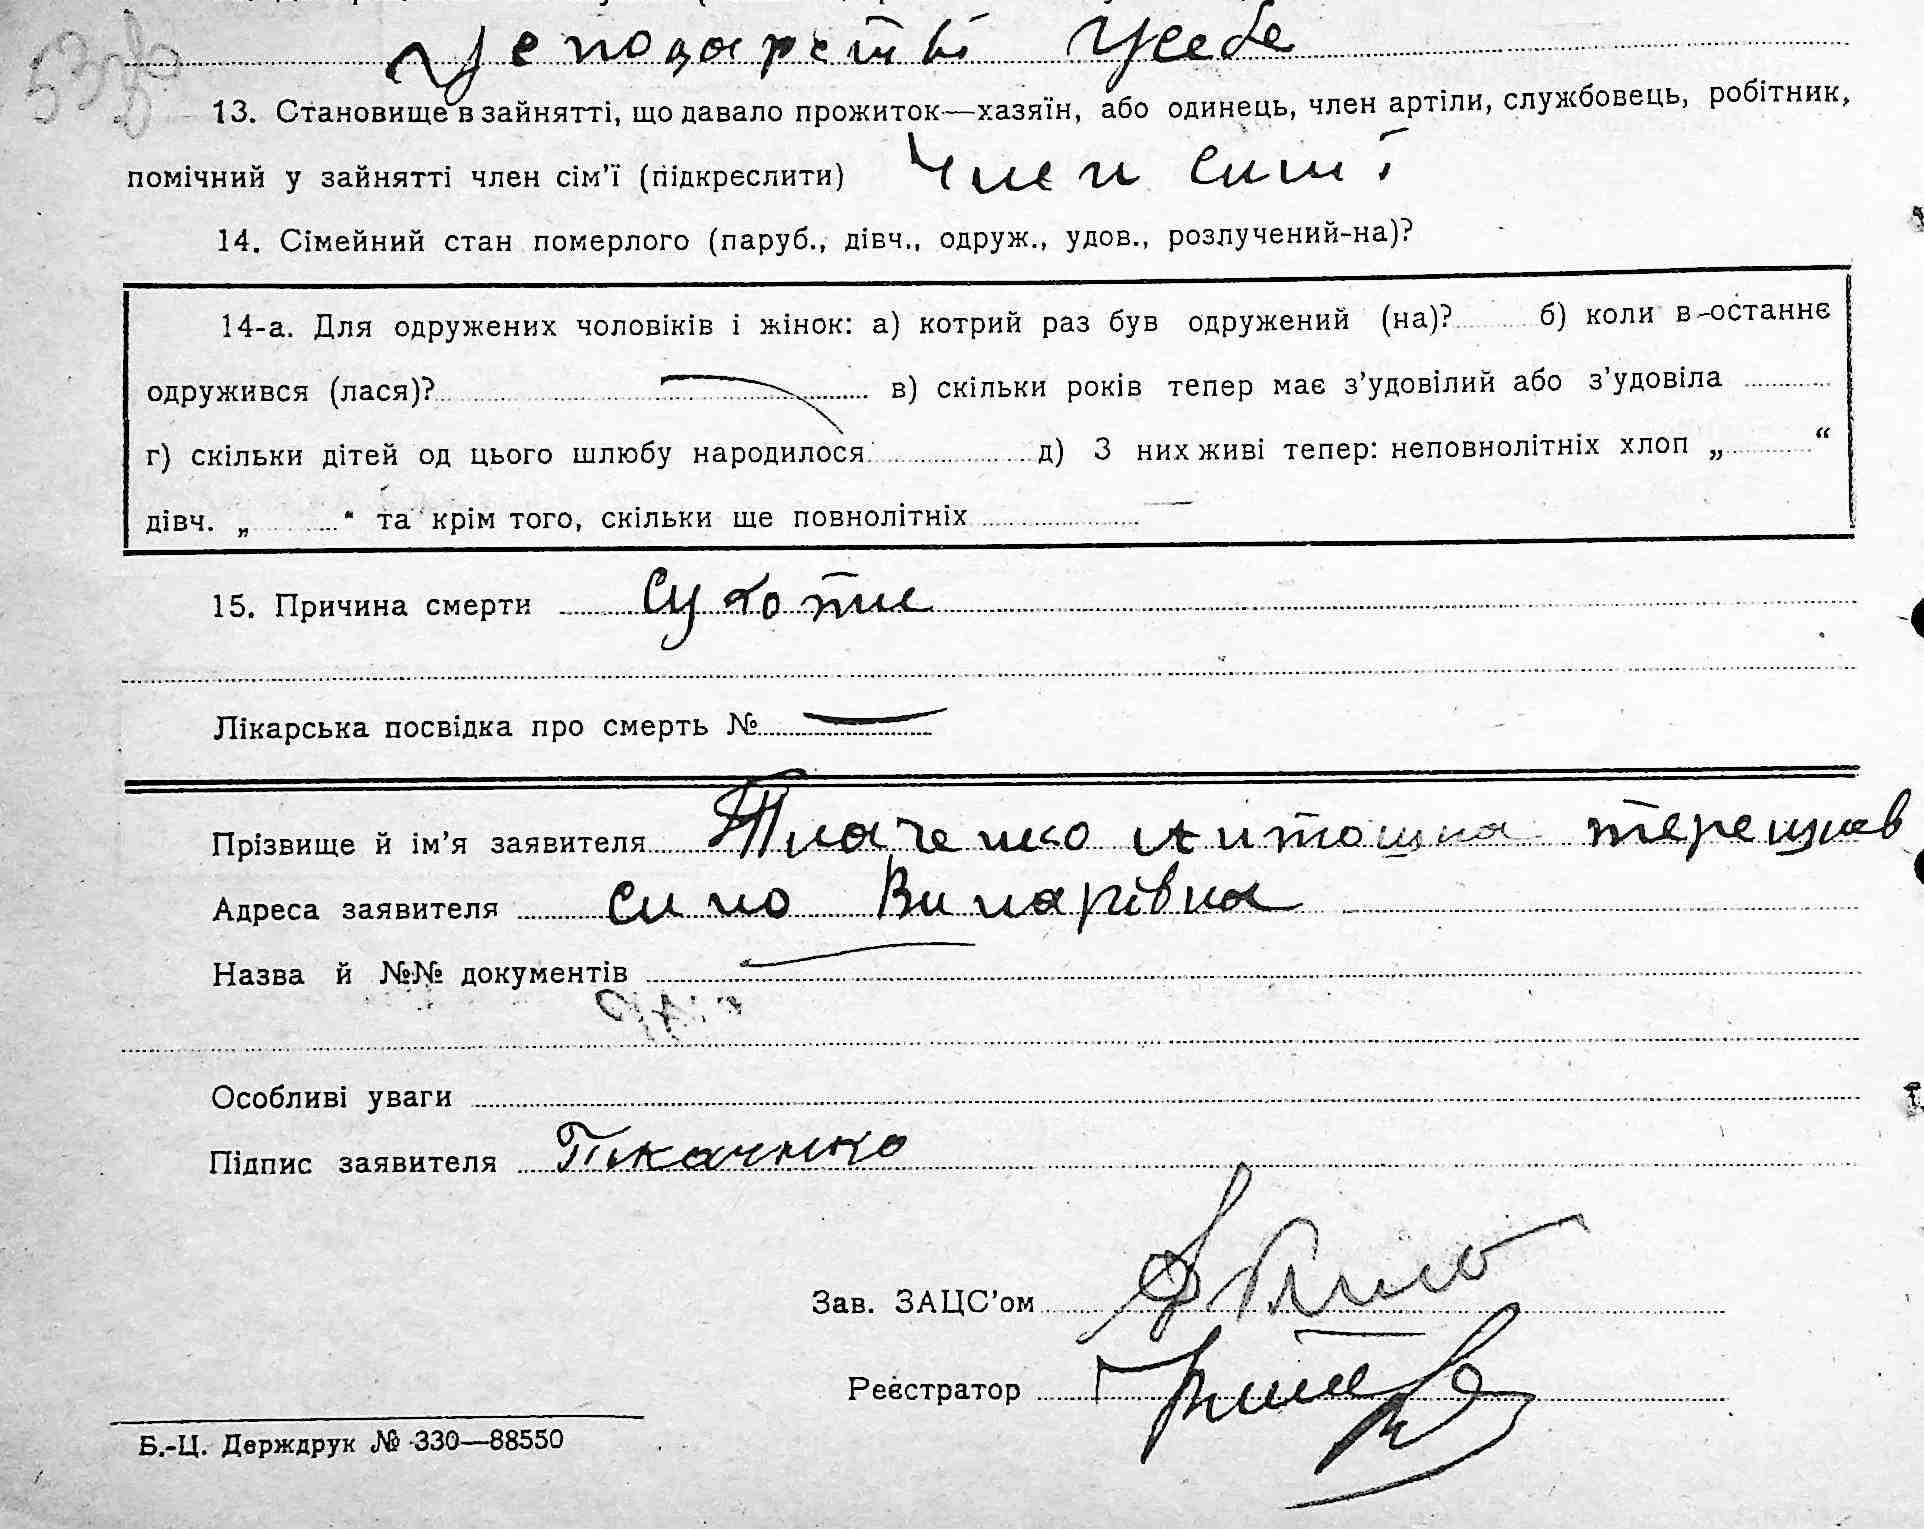 у господарстві у себе
13. Становище в зайнятті, що давало прожиток—хазяїн, або одинець, член артіли, службовець, робітник,
помічний у зайнятті член сім’ї (підкреслити) Член симї
14. Сімейний стан померлого (паруб., дівч., одруж., удов., розлучений-на)?
14-а. Для одружених чоловіків і жінок: а) котрий раз був одружений (на)? б) коли в-останнє
одружився (лася)? в) скільки років тепер має з’удовілий або з’удовіла
г) скільки дітей од цього шлюбу народилося д) З них живі тепер: неповнолітніх хлоп „ “
дівч. „ “ та крім того, скільки ще повнолітніх
15. Причина смерти Сухоти
Лікарська посвідка про смерть №
Прізвище й ім’я заявителя Ткаченко
Адреса заявителя село
Назва й №№ документів
Особливі уваги
Підпис заявителя Ткаченко
Зав. ЗАЦС’ом
Реєстратор
Б.-Ц. Держдрук № 330—88550